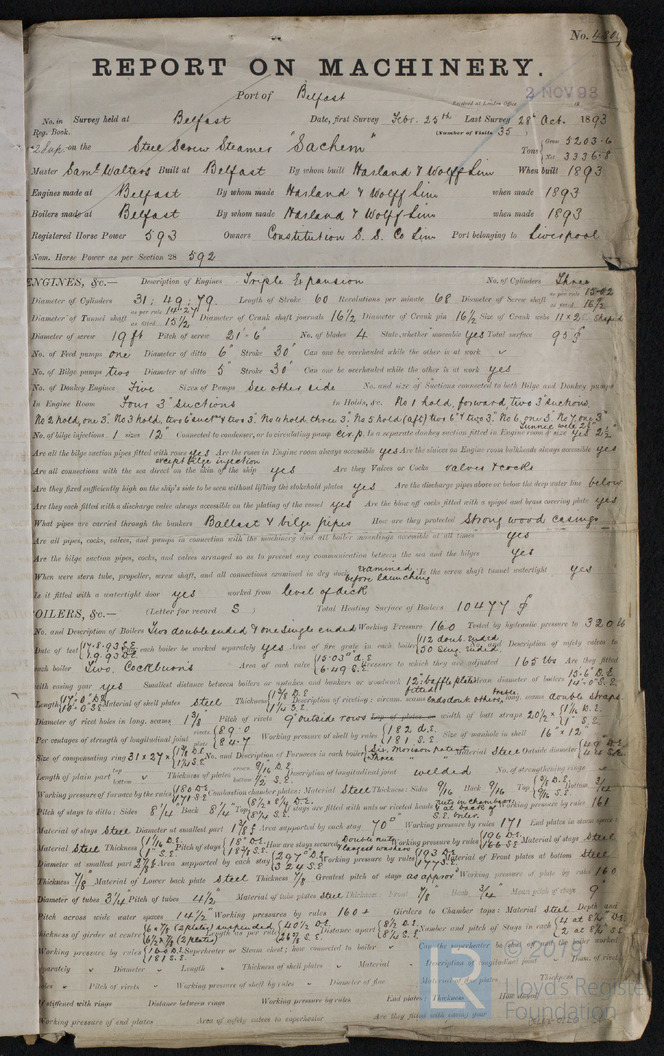 No. 450
REPORT ON MACHINERY.
Port of Belfast
Received at London Office 2 NOV 93
No. in Survey held at Belfast Date, first Survey Febr. 25th Last Survey 28th Oct. 1893
Reg. Book. (Number of Visits 35
on the Steel Screw Steamer "Sachem" Tons Gross 5203.6 Net 3336.8
Master Saml. Walters Built at Belfast By whom built Harland & Wolff Lim When built 1893
Engines made at Belfast By whom made Harland & Wolff Lim when made 1893
Boilers made at Belfast By whom made Harland & Wolff Lim when made 1893
Registered Horse Power 593 Owners Constitution S. S. Co Lim Port belonging to Liverpool
Nom. Horse Power as per Section 28 592
ENGINES, &c.— Description of Engines Triple Expansion No. of Cylinders Three
Diameter of Cylinders 31: 49: 79 Length of Stroke 60 Revolutions per minute 68 Diameter of Screw shaft as per rule 15.02 as fitted 16½
Diameter of Tunnel shaft as per rule 14.27 as fitted 15½ Diameter of Crank shaft journals 16½ Diameter of Crank pin 16½ Size of Crank webs 11 x 2 shaped
Diameter of screw 19 ft Pitch of screw 21'-6" No. of blades 4 State, whether moveable yes Total surface 95
No. of Feed pumps one Diameter of ditto 6" Stroke 30" Can one be overhauled while the other is at work
No. of Bilge pumps two Diameter of ditto 5" Stroke 30" Can one be overhauled while the other is at work yes
No. of Donkey Engines Five Sizes of Pumps See other side No. and size of Suctions connected to both Bilge and Donkey pumps
In Engine Room Four 3" suctions In Holds, &c. No 1 hold, forward, two 3" suctions
No 2 hold, one 3". No 3 hold, two 6" suctns & two 3". No 4 hold, three 3". No 5 hold (aft) two 6" & two 3". No 6, one 3" No 7, one 3"
Tunnel well 2½"
No. of bilge injections 1 size 12" Connected to condenser, or to circulating pump cir. p. Is a separate donkey suction fitted in Engine room & size yes 2½"
Are all the bilge suction pipes fitted with roses yes Are the roses in Engine room always accessible yes Are the sluices on Engine room bulkheads always accessible yes
except bilge injection
Are all connections with the sea direct on the skin of the ship yes Are they Valves or Cocks valves & cocks
Are they fixed sufficiently high on the ship's side to be seen without lifting the stokehold plates yes Are the discharge pipes above or below the deep water line below
Are they each fitted with a discharge valve always accessible on the plating of the vessel yes Are the blow off cocks fitted with a spigot and brass covering plate yes
What pipes are carried through the bunkers Ballast & bilge pipes How are they protected Strong wood casings
Are all pipes, cocks, valves, and pumps in connection with the machinery and all boiler mountings accessible at all times yes
Are the bilge suction pipes, cocks, and valves arranged so as to prevent any communication between the sea and the bilges yes
When were stern tube, propeller, screw shaft, and all connections examined in dry dock examined before launching Is the screw shaft tunnel watertight yes
Is it fitted with a watertight door yes worked from level of deck
BOILERS, &c.— (Letter for record S) Total Heating Surface of Boilers 10477
No. and Description of Boilers Two double ended & one single ended Working Pressure 160 Tested by hydraulic pressure to 320 lb
Date of test 17.8.93 S.E. 2.9.93 D.E. each boiler be worked separately yes Area of fire grate in each boiler 112 doub. ended 50 sing. ended Description of safety valves to
each boiler Two. Cockburn's Area of each valve 15.03" D.E. 6.49 S.E. Pressure to which they are adjusted 165 lbs Are they fitted
with easing gear yes Smallest distance between boilers or uptakes and bunkers or woodwork 12: baffle plates fitted Mean diameter of boilers 13'-6" D.E. 14'-0" S.E.
Material of shell plates Steel Thickness Description of riveting: circum. seams long. seams double straps
Diameter of rivet holes in long. seams 1 3/8 Pitch of rivets 9" outside rows width of butt straps
Per centages of strength of longitudinal joint 89.0 84.7 Working pressure of shell by rules 182 d.E. 181 S.E. Size of manhole in shell 16" x 12"
Size of compensating ring 31 x 27 No. and Description of Furnaces in each boiler Six Morison patent Three Material Steel Outside diameter
Length of plain part Thickness of plates Description of longitudinal joint welded No. of strengthening rings
Working pressure of furnace by the rules 180 D.E. 171 S.E. Combustion chamber plates: Material Steel Thickness: Sides 9/16 Back 9/16 Top Bottom 3/4
Pitch of stays to ditto: Sides 8¼ Back 8¼ Top If stays are fitted with nuts or riveted heads nuts in chambers & at back of S.E. boiler Working pressure by rules 161
Material of stays Steel Diameter at smallest part Area supported by each stay 70" Working pressure by rules 171 End plates in steam space:
Material Steel Thickness Pitch of stays How are stays secured Double nuts & largest washers Working pressure by rules 196 D.E. 166 S.E. Material of stays Steel
Diameter at smallest part Area supported by each stay 297" D.E. 324 S.E. Working pressure by rules 193 D.E. 177 S.E. Material of Front plates at bottom Steel
Thickness 7/8 Material of Lower back plate Steel Thickness 7/8 Greatest pitch of stays as approved Working pressure of plate by rules 160
Diameter of tubes 3¼ Pitch of tubes 4½" Material of tube plates Steel Thickness: Front 7/8 Back 3/4" Mean pitch of stays 9"
Pitch across wide water spaces 14½" Working pressures by rules 160 Girders to Chamber tops: Material Steel Depth and
thickness of girder at centre Length as per rule Distance apart Number and pitch of Stays in each
Working pressure by rules Superheater or Steam chest; how connected to boiler Can the superheater be shut off and the boiler worked
separately Diameter Length Thickness of shell plates Material Description of longitudinal joint Diam. of rivet
holes Pitch of rivets Working pressure of shell by rules Diameter of flue Material of flue plates Thickness
If stiffened with rings Distance between rings Working pressure by rules End plates: Thickness How stayed
Working pressure of end plates Area of safety valves to superheater Are they fitted with easing gear
© 2019
Lloyd's Register
Foundation